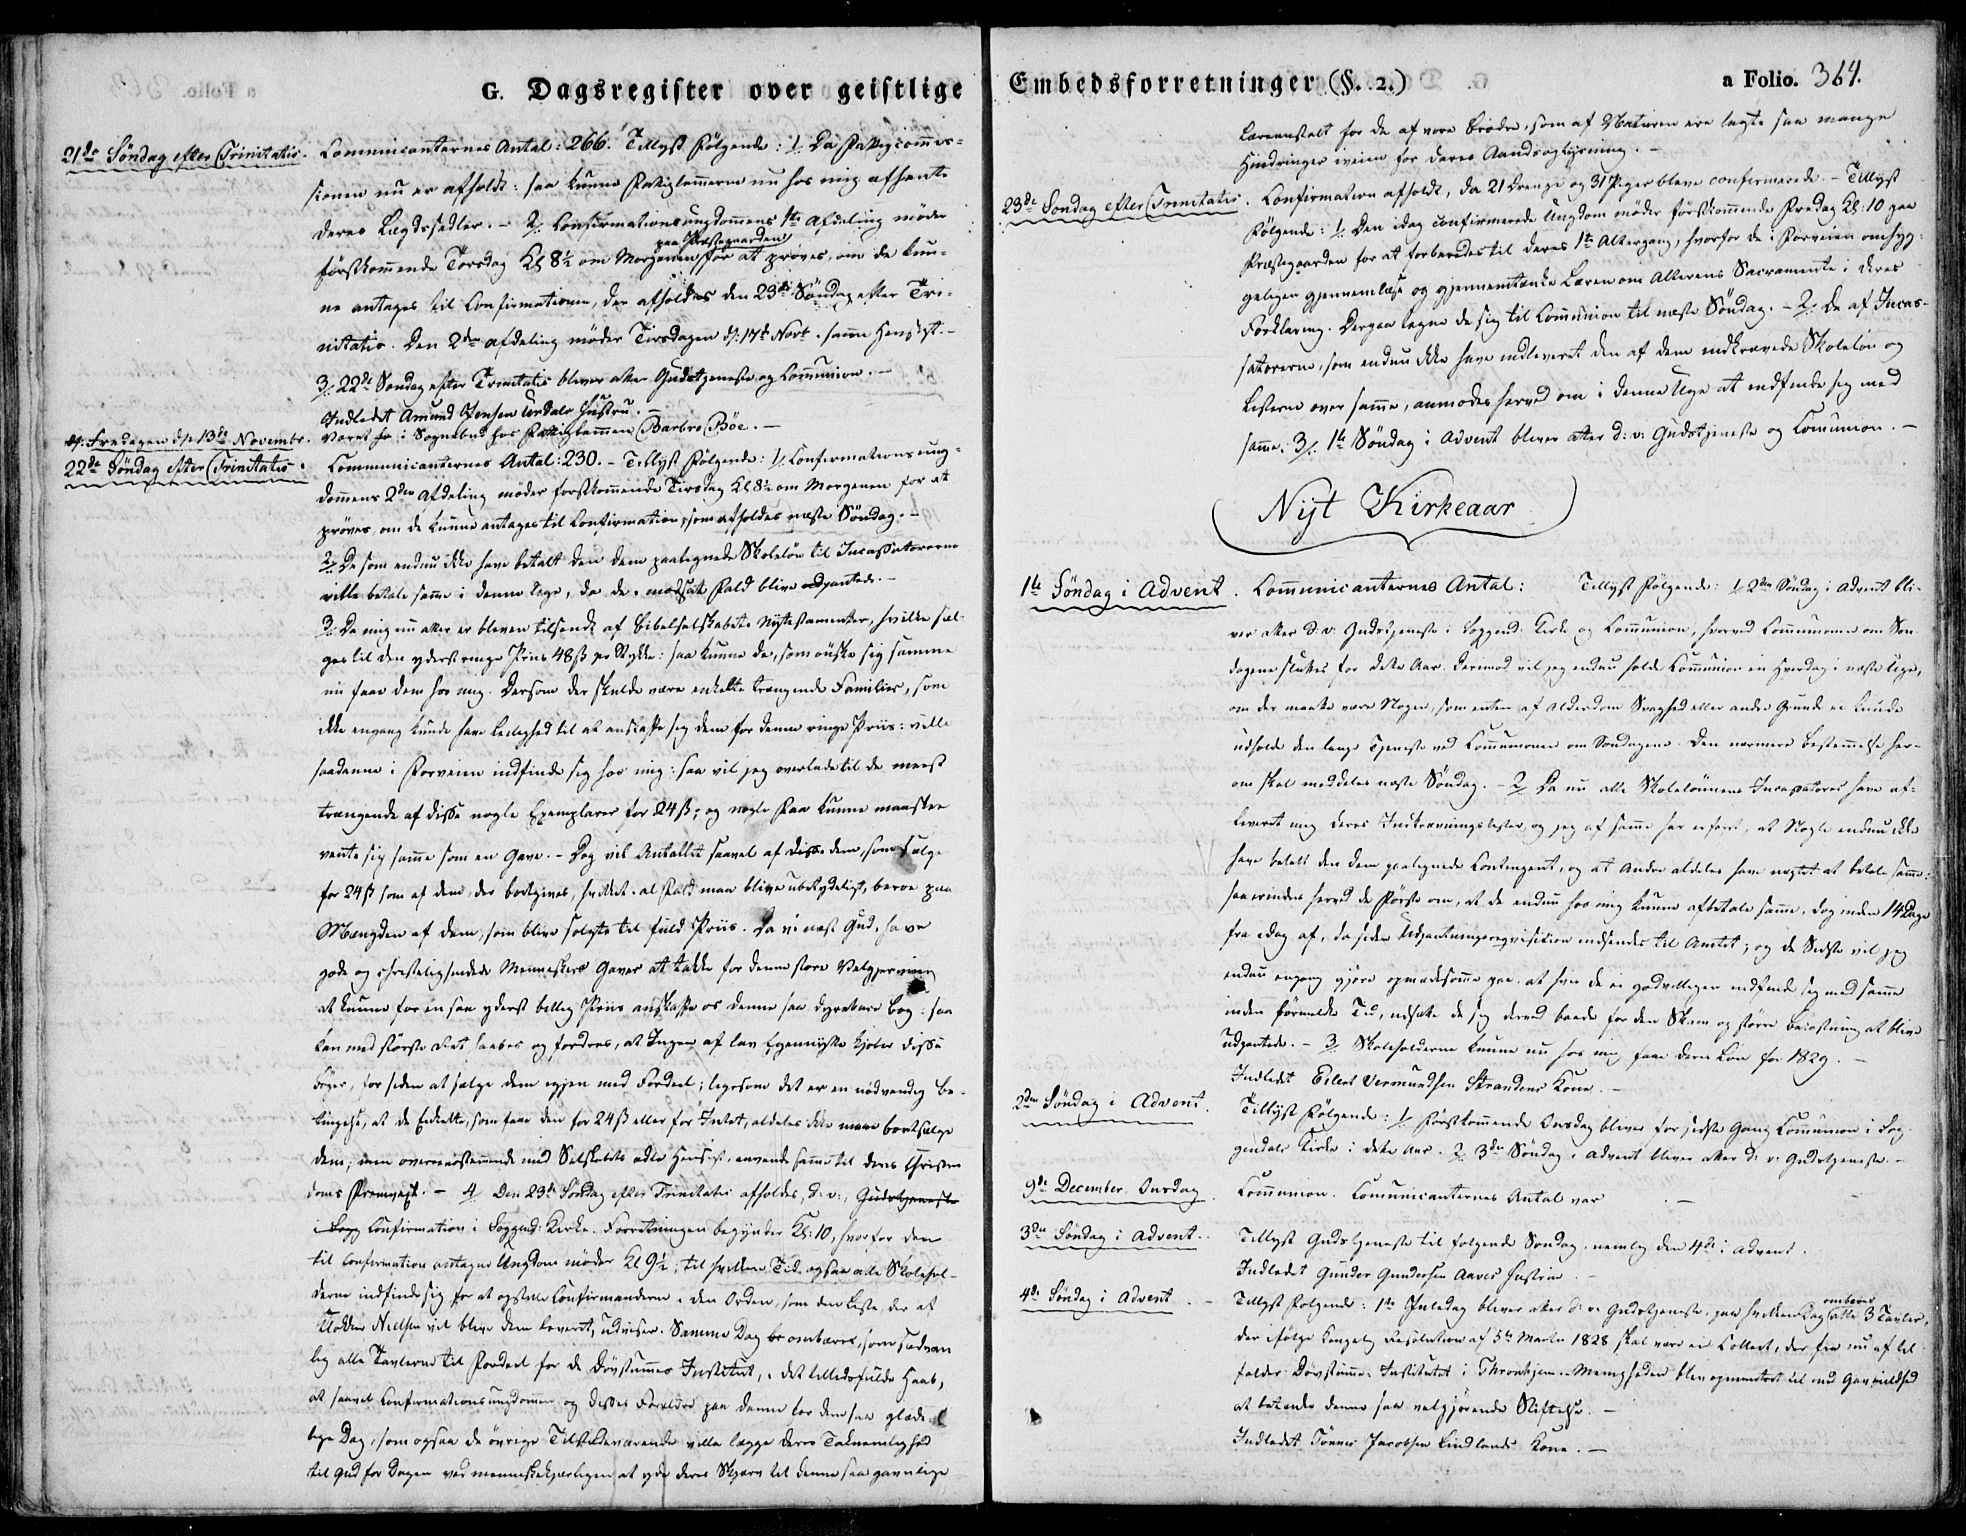 G. Dagsregister over geistlige
21de Søndag efter Trinitatis. Communicanternes Antal: 266. Tillyst Følgende: 1. Da Fattigcommis-
sionen nu er afholdt: saa kunne Fattiglemmerne nu hos mig afhente
deres Lægdssedler. - 2. Confirmationsungdommens 1ste Afdeling møder
førstkommende Torsdag Kl 8½ om Morgenen paa Præstegaarden for at prøves, om de kun-
ne antages til Confirmationen, der afholdes den 23de Søndag efter Tri-
nitatis. Den 2den Afdeling møder Tirsdagen d: 17de Novb. i samme Hensigt. -
3. 22de Søndag efter Trinitatis bliver atter Gudstjeneste og Communion. -
Indledet Amund Jensen Urdals Hustru. -
Fredagen d. 13de Novembr. Været i Sognebud hos Fattiglemmen Barbro Böe. -
22de Søndag efter Trinitatis. Communicanternes Antal: 230. - Tillyst Følgende: 1. Confirmationsung-
dommens 2den Afdeling møder førstkommende Tirsdag Kl 8½ om Morgenen for at
prøves om de kunne antages til Confirmation, som afholdes næste Søndag. -
2. De som endnu ikke have betalt den dem paalignede Skoleløn til Incassatorerne
ville betale samme i denne Uge, da de i modsat Fald blive udpantede. -
3. Da mig nu atter er bleven tilsendt af Bibelselskabet Nytestamenter, hvilke sæl-
ges til den yderst ringe Priis 48ß pr Stykke: saa kunne de, som ønske sig samme
nu faae dem hos mig. Dersom der skulde være enkelte trængende Familier, som
ikke engang kunde have Leilighed til at anskaffe sig dem for denne ringe Priis: ville
saadanne i Forveien indfinde sig hos mig: saa vil jeg overlade til de meest
trængende af disse nogle Exemplarer for 24ß; og nogle Faa kunne maaskee
vente sig samme som en Gave. - Dog vil Antallet saavel af disse dem, som sælges
for 24ß som af dem, der bortgives, hvilket i al Fald maa blive ubetydeligt, beroe paa
Mængden af dem, som blive solgte til fuld Priis. Da vi næst Gud, have
gode og christeligsindede Menneskers Gaver at takke for denne store Velgjerning
at kunne for en saa yderst billig Priis anskaffe os denne saa dyrebare Bog: saa
kan med største Ret haabes og fordres, at Ingen af lav Egennytte kjøber disse
Bøger, for siden at sælge dem igjen med Fordeel; ligesom det er en nødvendig Be-
tingelse, at de Enkelte, som faae den for 24ß eller for Intet, aldeles ikke maae bortsælge
dem; men overeensstemmende med Selskabets ædle Hensigt, anvende samme til deres Christen
doms Fremvext. - 4. Den 23de Søndag efter Trinitatis afholdes, d: v:, Gudstjeneste
i Sogg Confirmation i Soggend: Kirke. Forretningen begynder Kl: 10, hvorfor den
til Confirmation antagne Ungdom møder Kl 9½, til hvilken Tid ogsaa alle Skolehol-
derne indfinde sig for at opstille Confirmanderne i den Orden, som den Liste, der af
Klokker Nielsen vil blive dem leveret, udviser. Samme Dag be ombæres, som sædvan
lig alle Tavlerne til Fordeel for de Døvstummes Institut, i det tillidsfulde Haab,
at saavel Confirmationsungdommen og disses Forældre paa denne for dem saa glæde-
lige Dag, som ogsaa de øvrige Tilstedeværende ville lægge deres Taknemlighed
til Gud for Dagen ved menneskekjærligen at yde deres Skjærv til denne saa gavnlige
Embedsforretninger (§. 2.)
a Folio. 364.
Læreanstalt for de af vore Brødre, som af Naturen ere lagte saa mange
Hindringer iveien for deres Aandsoplysning. -
23de Søndag efter Trinitatis. Confirmation afholdt, da 21 Drenge og 31 Piger bleve confirmerede. - Tillyst
Følgende: 1. Den idag confirmerede Ungdom møder førstkommende Fredag Kl: 10 paa
Præstegaarden for at forberedes til deres 1ste Altergang, hvorfor de i Forveien omhyg-
geligen gjennemlæse og gjennemtænke Læren om Alterens Sacramente i deres
Forklaring. Derpaa tegne de sig til Communion til næste Søndag. - 2. De af Incas-
satorerne, som endnu ikke have indleveret den af dem indkrævede Skoleløn og
Listerne over samme, anmodes herved om i denne Uge at indfinde sig med
samme. 3. 1ste Søndag i Advent bliver atter d: v: Gudstjeneste og Communion. -
Nyt Kirkeaar
1ste Søndag i Advent. Communicanternes Antal: Tillyst Følgende: 1. 2den Søndag i Advent bli-
ver atter d: v: Gudstjeneste i Soggend: Kirke og Communion, hvorved Communionerne om Søn-
dagene sluttes for dette Aar. Derimod vil jeg endnu holde Communion en Hverdag i næste Uge,
om der maatte være Nogen, som enten af Alderdom Svaghed eller andre Grunde ei kunde
udholde den lange Tjeneste ved Communionen om Søndagene. Den nærmere Bestemmelse her-
om skal meddeles næste Søndag. - 2. Da nu alle Skolelønnens Incassatores have af-
leveret mig deres Indkrævningslister, og jeg af samme har erfaret, at Nogle endnu ikke
have betalt den dem paalignede Contingent, og at Andre aldeles have nægtet at betale samme:
saa mindes herved de Første om, at de endnu hos mig kunne afbetale samme, dog inden 14 Dage
fra idag af, da siden Udpantningsreqvisition indsendes til Amtet; og de Sidste vil jeg
endnu engang gjøre opmærksomme paa, at hvis de ei godvilligen indfinde sig med samme
inden førmeldte Tid, udsætte de sig derved baade for den Skam og større Bekostning at blive
udpantede. - 3. Skoleholderne kunne nu hos mig faae deres Løn for 1829. -
Indledet Eilert Vermundsen Strandens Kone. -
2den Søndag i Advent. Tillyst Følgende: 1. Førstkommende Onsdag bliver for sidste Gang Communion i Sog-
gendals Kirke i dette Aar. 2. 3die Søndag i Advent bliver atter d: v: Gudstjeneste. -
9de December Onsdag. Communion. Communicanternes Antal var . -
3die Søndag i Advent. Tillyst Gudstjeneste til følgende Søndag, nemlig den 4de i Advent.
Indledet Gunder Gundersen Aaros Hustru. -
4de Søndag i Advent. - Tillyst Følgende: 1ste Juledag bliver atter d: v: Gudstjeneste, paa hvilken Dag ombæres alle 3 Tavler,
der ifølge Kongel. Resolution af 5te Martii 1828 skal være en Collect, der fra nu af til
falder Døvstumme-Institutet i Throndhjem. Menigheden blev opmuntret til med Gavmildhed
at betænke denne saa velgjørende Stiftelse. -
Indledet Tønnes Jacobsen Lindlands Kone. -